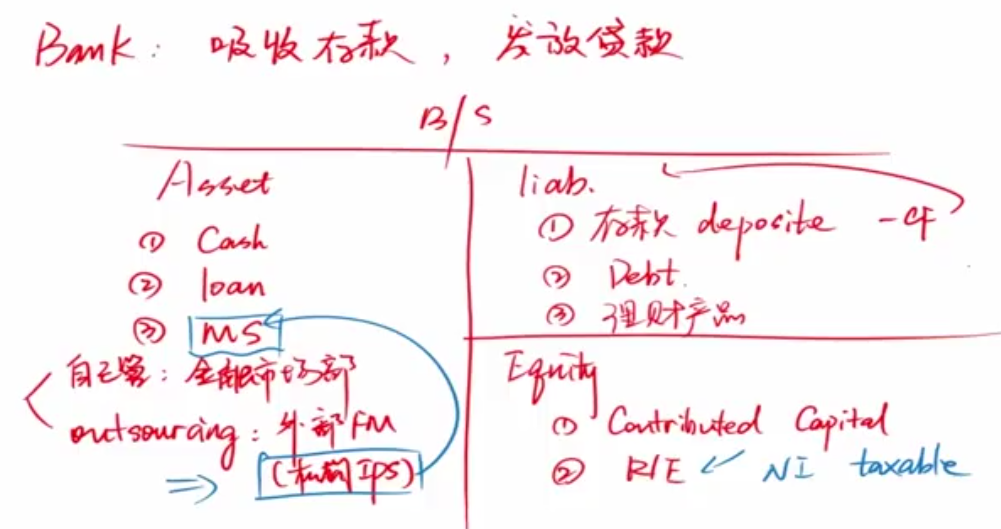 Bank: 吸收存款, 发放贷款
B/S
Asset
① Cash
② loan
③ MS
自己管: 金融市场部
outsourcing: 外部 FM
⇒ (机构 IPS)
liab.
① 存款 deposite -CF
② Debt.
③ 理财产品
Equity
① Contributed Capital
② R/E ↙ NI taxable